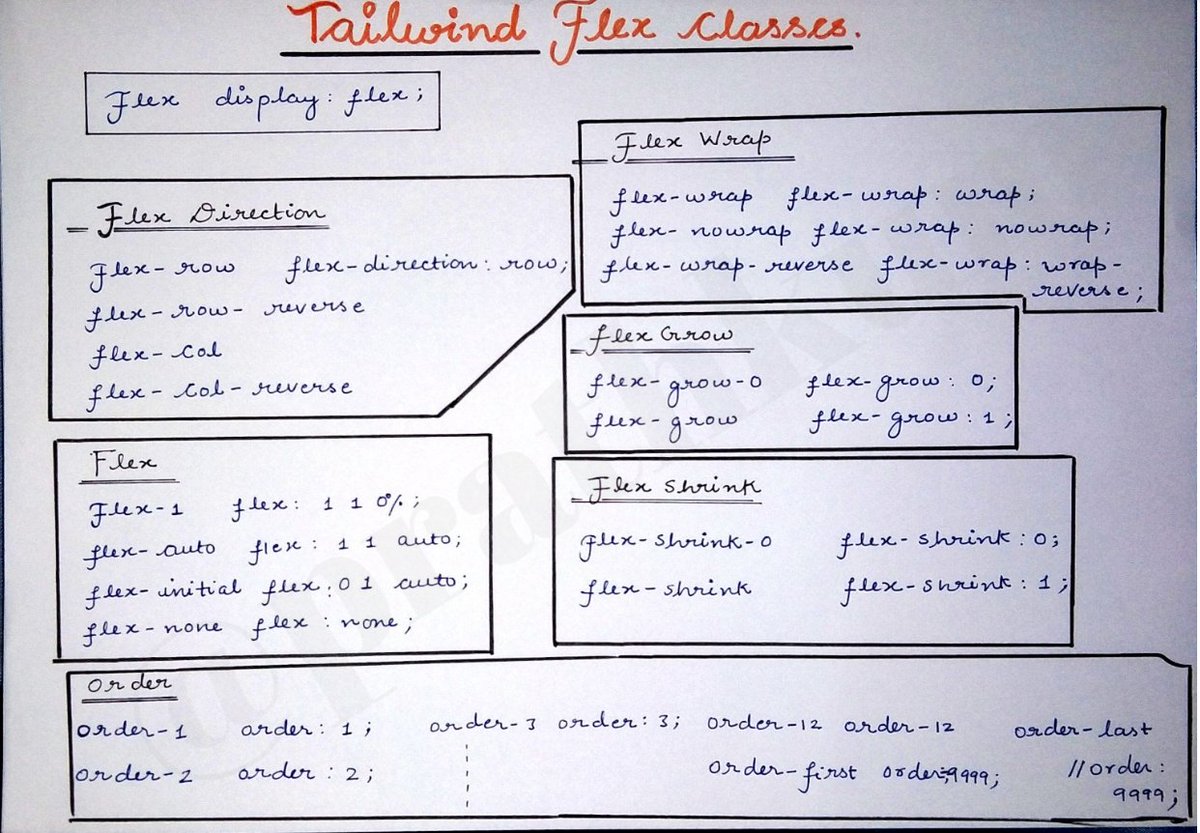 Tailwind Flex Classes.
Flex display: flex;
Flex Direction
Flex-row flex-direction: row;
flex-row-reverse
flex-col
flex-col-reverse
Flex Wrap
flex-wrap flex-wrap: wrap;
flex-nowrap flex-wrap: nowrap;
flex-wrap-reverse flex-wrap: wrap-
reverse;
flex Grow
flex-grow-0 flex-grow: 0;
flex-grow flex-grow: 1;
Flex
Flex-1 flex: 1 1 0%;
flex-auto flex: 1 1 auto;
flex-initial flex: 0 1 auto;
flex-none flex: none;
Flex Shrink
flex-shrink-0 flex-shrink: 0;
flex-shrink flex-shrink: 1;
order
order-1 order: 1; order-3 order: 3; order-12 order-12 order-last
order-2 order: 2; order-first order:-9999; //order:
9999;